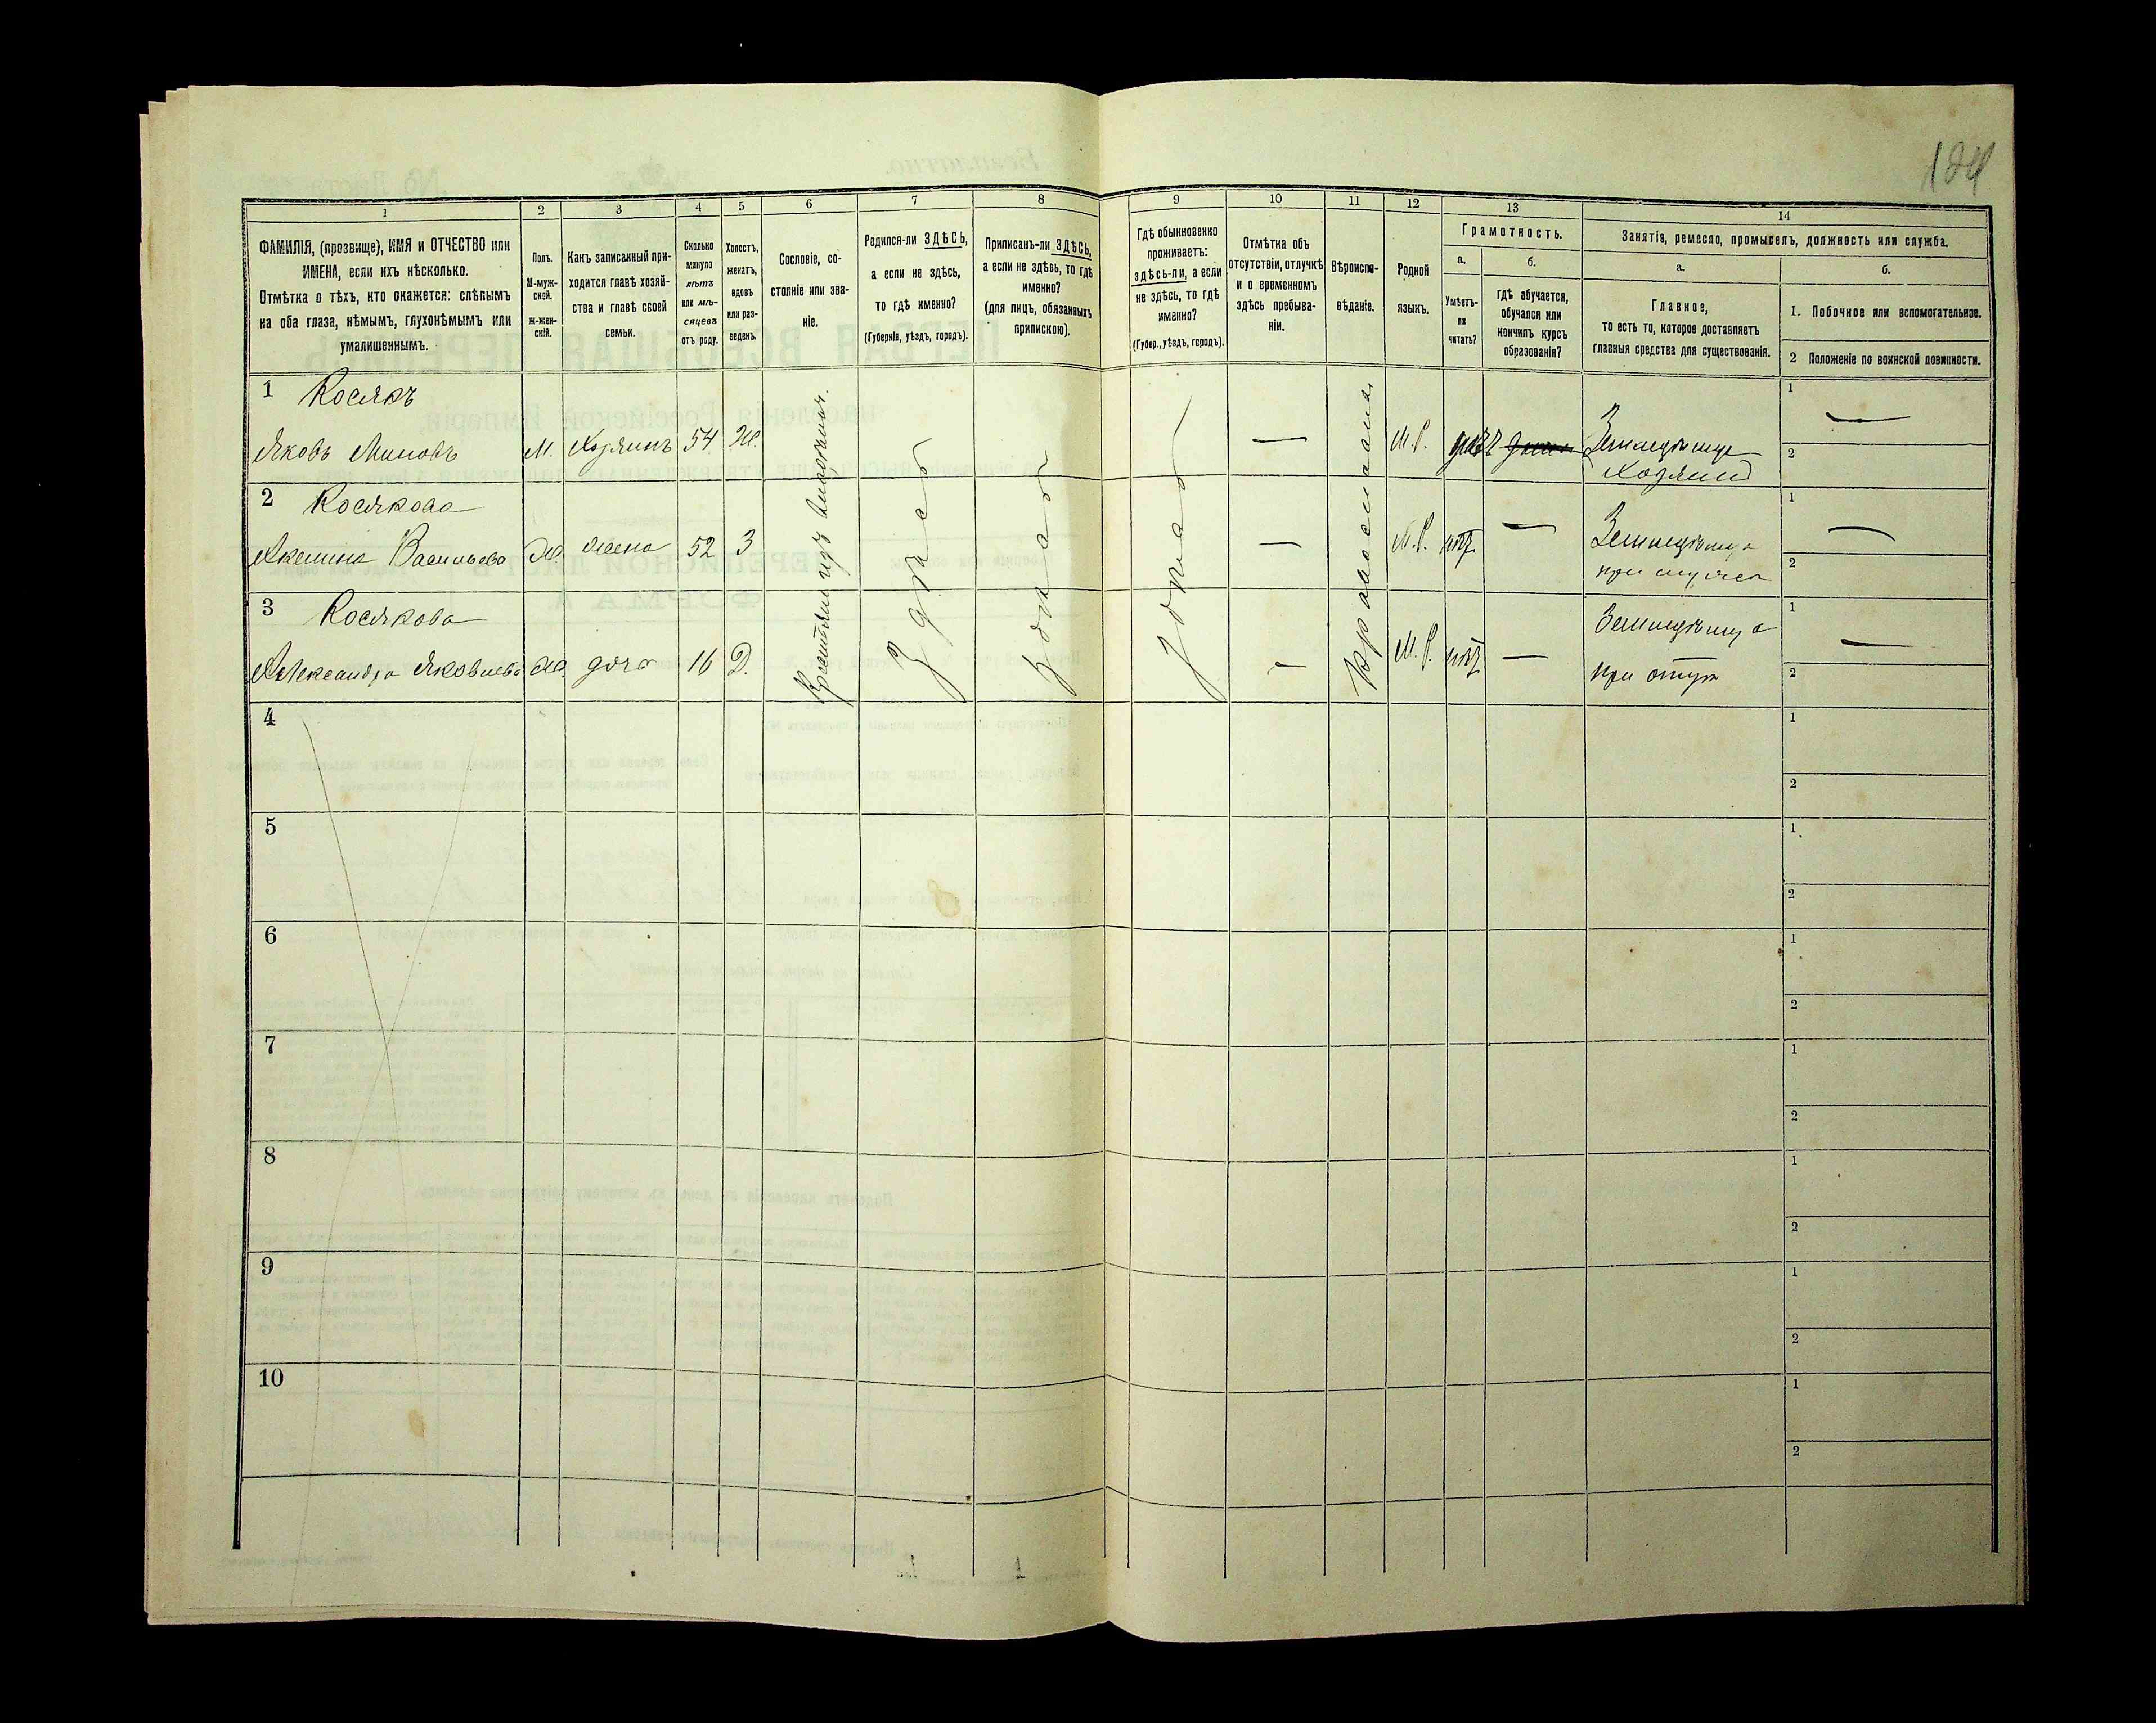 184
1
2
3
4
5
6
7
8
9
10
11
12
13
14
ФАМИЛІЯ, (прозвище), ИМЯ и ОТЧЕСТВО или
ИМЕНА, если ихъ нѣсколько.
Отмѣтка о тѣхъ, кто окажется: слѣпымъ
на оба глаза, нѣмымъ, глухонѣмымъ или
умалишеннымъ.
Полъ.
М-муж-
ской.
ж-жен-
скій.
Какъ записанный при-
ходится главѣ хозяй-
ства и главѣ своей
семьи.
Сколько
минуло
лѣтъ
или мѣ-
сяцевъ
отъ роду.
Холостъ,
женатъ,
вдовъ
или раз-
веденъ.
Сословіе, со-
стояніе или зва-
ніе.
Родился-ли ЗДѢСЬ,
а если не здѣсь,
то гдѣ именно?
(Губернія, уѣздъ, городъ).
Приписанъ-ли ЗДѢСЬ,
а если не здѣсь, то гдѣ
именно?
(для лицъ, обязанныхъ
припискою).
Гдѣ обыкновенно
проживаетъ:
здѣсь-ли, а если
не здѣсь, то гдѣ
именно?
(Губер., уѣздъ, городъ).
Отмѣтка объ
отсутствіи, отлучкѣ
и о временномъ
здѣсь пребыва-
ніи.
Вѣроиспо-
вѣданіе.
Родной
языкъ.
Грамотность.
а.
Умѣетъ-
ли
читать?
б.
гдѣ обучается,
обучался или
кончилъ курсъ
образованія?
Занятіе, ремесло, промыселъ, должность или служба.
а.
Главное,
то есть то, которое доставляетъ
главныя средства для существованія.
б.
1. Побочное или вспомогательное.
2 Положеніе по воинской повинности.
1 Косякъ
Яковъ Миновъ М. Хозяинъ 54 Ж. — М.Р.
Земледѣлецъ
Хозяинъ
1 —
2
2 Косякова
Акелина Васильева Ж жена 52 З — М.Р. нѣт —
Земледѣлица
при мужѣ
1 —
2
3 Косякова
Александра Яковлева Ж. дочь 16 Д. — М.Р. нѣт —
Земледѣлица
при отцѣ
1 —
2
Здѣсь
4
1
2
5
1
2
6
1
2
7
1
2
8
1
2
9
1
2
10
1
2